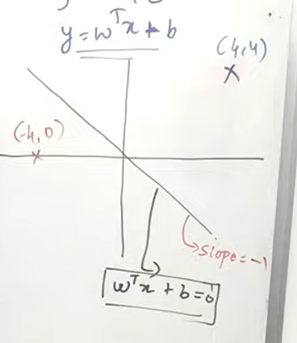 y = wᵀx + b
(4,4)
x
(-4,0)
x
slope = -1
wᵀx + b = 0